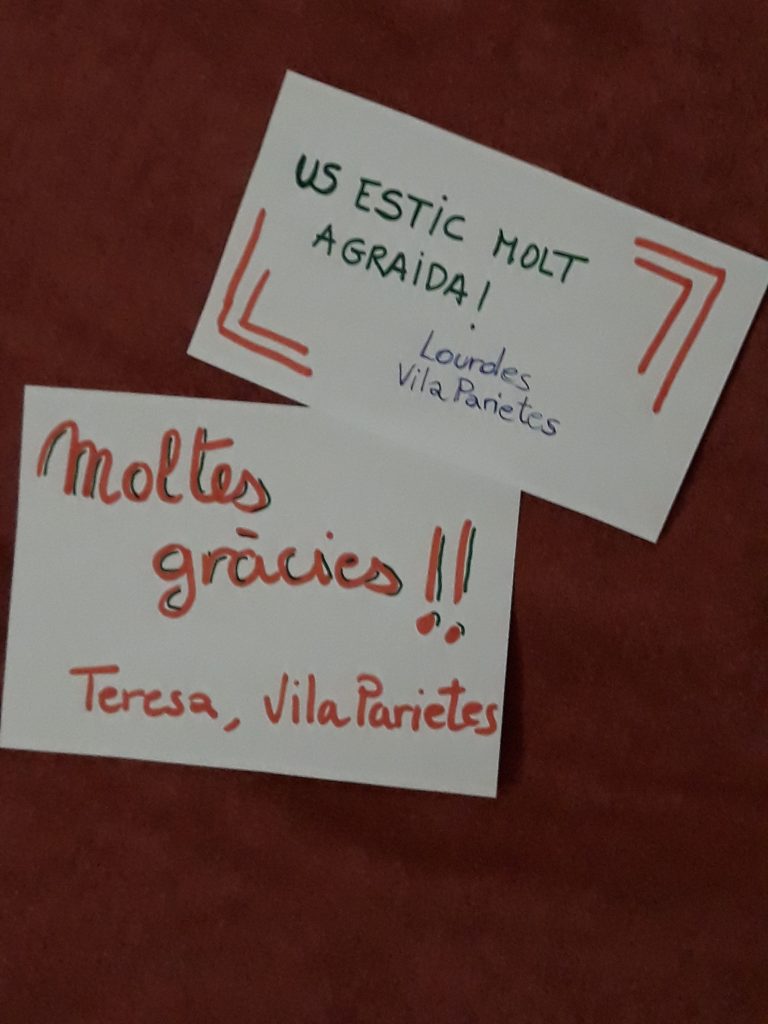 US ESTIC MOLT
AGRAIDA!
Lourdes
Vila Parietes
Moltes
gràcies!!
Teresa, Vila Parietes